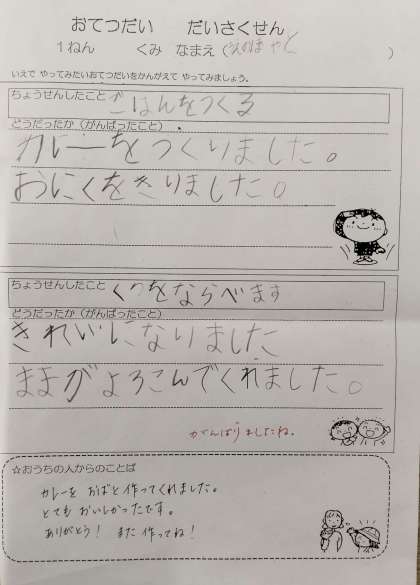 おてつだい　だいさくせん
1ねん　　くみ　なまえ（　　　　　）
いえで やってみたいおてつだいをかんがえて やってみましょう。
ちょうせんしたこと ごはんをつくる
どうだったか（がんばったこと）
カレーをつくりました。
おにくをきりました。
ちょうせんしたこと くつをならべます
どうだったか（がんばったこと）
きれいになりました
ままがよろこんでくれました。
がんばりましたね。
☆おうちの人からのことば
カレーを おばと作ってくれました。
とても おいしかったです。
ありがとう！ また 作ってね！